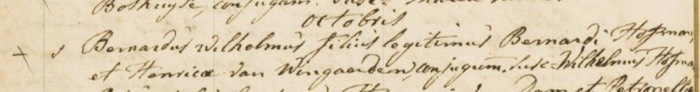 Octobris
5 Bernardus Wilhelmus filius legitimus Bernardi Hofman
et Henricæ van Wingaerden conjugum. susc Wilhelmus Hofman
Dam et Petronella